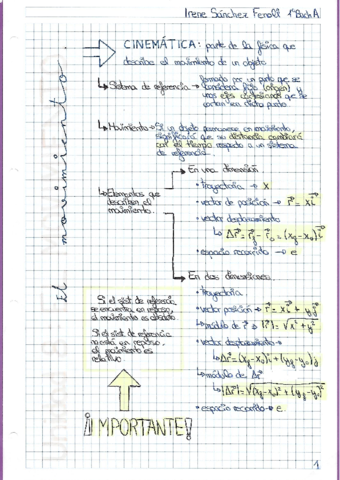 Irene Sánchez Fenoll 1ºBach A
El movimiento.
CINEMÁTICA: parte de la física que
describe el movimiento de un objeto.
Sistema de referencia → formado por un punto que se
considera fijo (origen) y
unos ejes cartesianos que se
cortan en dicho punto
Movimiento → Si un objeto permanece en movimiento,
significará que su distancia cambiará
con el tiempo respecto a un sistema
de referencia.
Elementos que
describen el
movimiento.
En una dimensión
• trayectoria → x
• vector de posición → r⃗ = xi⃗
• vector desplazamiento
↳ Δr⃗ = r⃗f - r⃗o = (xf - xo)i⃗
• espacio recorrido → e
En dos dimensiones
• trayectoria
• vector posición → r⃗ = xi⃗ + yj⃗
↳ módulo de r⃗ → |r⃗| = √x² + y²
• vector desplazamiento →
↳ Δr⃗ = (xf - xo)i⃗ + (yf - yo)j⃗
↳ módulo de Δr⃗
↳ |Δr⃗| = √(xf - xo)² + (yf - yo)²
• espacio recorrido → e
Si el sist de referencia
se encuentra en reposo,
el movimiento es absoluto
Si el sist de referencia
no está en reposo,
el movimiento es
relativo.
¡IMPORTANTE!
1